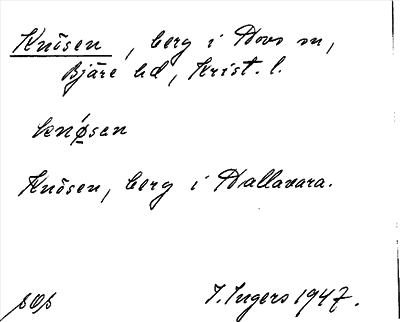 Knösen, berg i Hovs sn,
Bjäre hd, Krist. l.
knǿ̱sən
Knösen, berg i Hallavara.
I. Ingers 1947.